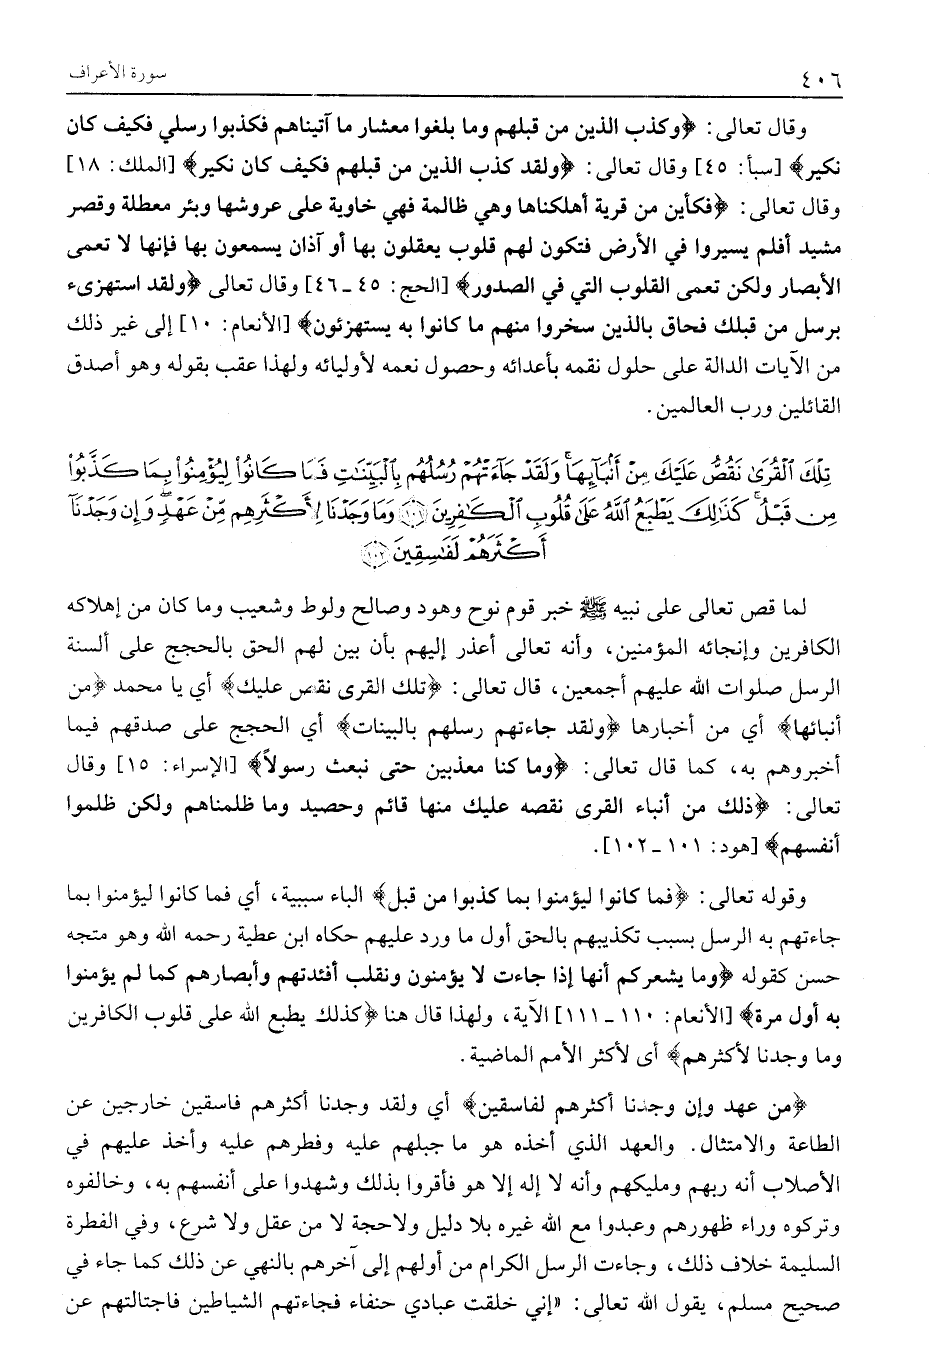 ٤٠٦
سورة الأعراف
وقال تعالى: ﴿وكذب الذين من قبلهم وما بلغوا معشار ما آتيناهم فكذبوا رسلي فكيف كان
نكير﴾ [سبأ: ٤٥] وقال تعالى: ﴿ولقد كذب الذين من قبلهم فكيف كان نكير﴾ [الملك: ١٨]
وقال تعالى: ﴿فكأين من قرية أهلكناها وهي ظالمة فهي خاوية على عروشها وبئر معطلة وقصر
مشيد أفلم يسيروا في الأرض فتكون لهم قلوب يعقلون بها أو آذان يسمعون بها فإنها لا تعمى
الأبصار ولكن تعمى القلوب التي في الصدور﴾ [الحج: ٤٥ ـ ٤٦] وقال تعالى ﴿ولقد استهزىء
برسل من قبلك فحاق بالذين سخروا منهم ما كانوا به يستهزئون﴾ [الأنعام: ١٠] إلى غير ذلك
من الآيات الدالة على حلول نقمه بأعدائه وحصول نعمه لأوليائه ولهذا عقب بقوله وهو أصدق
القائلين ورب العالمين.
تِلْكَ ٱلْقُرَىٰ نَقُصُّ عَلَيْكَ مِنْ أَنۢبَآئِهَا ۚ وَلَقَدْ جَآءَتْهُمْ رُسُلُهُم بِٱلْبَيِّنَٰتِ فَمَا كَانُوا۟ لِيُؤْمِنُوا۟ بِمَا كَذَّبُوا۟
مِن قَبْلُ ۚ كَذَٰلِكَ يَطْبَعُ ٱللَّهُ عَلَىٰ قُلُوبِ ٱلْكَٰفِرِينَ ﴿١٠١﴾ وَمَا وَجَدْنَا لِأَكْثَرِهِم مِّنْ عَهْدٍ ۖ وَإِن وَجَدْنَآ
أَكْثَرَهُمْ لَفَٰسِقِينَ ﴿١٠٢﴾
لما قص تعالى على نبيه ﷺ خبر قوم نوح وهود وصالح ولوط وشعيب وما كان من إهلاكه
الكافرين وإنجائه المؤمنين، وأنه تعالى أعذر إليهم بأن بين لهم الحق بالحجج على ألسنة
الرسل صلوات الله عليهم أجمعين، قال تعالى: ﴿تلك القرى نقص عليك﴾ أي يا محمد ﴿من
أنبائها﴾ أي من أخبارها ﴿ولقد جاءتهم رسلهم بالبينات﴾ أي الحجج على صدقهم فيما
أخبروهم به، كما قال تعالى: ﴿وما كنا معذبين حتى نبعث رسولاً﴾ [الإسراء: ١٥] وقال
تعالى: ﴿ذلك من أنباء القرى نقصه عليك منها قائم وحصيد وما ظلمناهم ولكن ظلموا
أنفسهم﴾ [هود: ١٠١ ـ ١٠٢].
وقوله تعالى: ﴿فما كانوا ليؤمنوا بما كذبوا من قبل﴾ الباء سببية، أي فما كانوا ليؤمنوا بما
جاءتهم به الرسل بسبب تكذيبهم بالحق أول ما ورد عليهم حكاه ابن عطية رحمه الله وهو متجه
حسن كقوله ﴿وما يشعركم أنها إذا جاءت لا يؤمنون ونقلب أفئدتهم وأبصارهم كما لم يؤمنوا
به أول مرة﴾ [الأنعام: ١١٠ ـ ١١١] الآية، ولهذا قال هنا ﴿كذلك يطبع الله على قلوب الكافرين
وما وجدنا لأكثرهم﴾ أى لأكثر الأمم الماضية.
﴿من عهد وإن وجدنا أكثرهم لفاسقين﴾ أي ولقد وجدنا أكثرهم فاسقين خارجين عن
الطاعة والامتثال. والعهد الذي أخذه هو ما جبلهم عليه وفطرهم عليه وأخذ عليهم في
الأصلاب أنه ربهم ومليكهم وأنه لا إله إلا هو فأقروا بذلك وشهدوا على أنفسهم به، وخالفوه
وتركوه وراء ظهورهم وعبدوا مع الله غيره بلا دليل ولاحجة لا من عقل ولا شرع، وفي الفطرة
السليمة خلاف ذلك، وجاءت الرسل الكرام من أولهم إلى آخرهم بالنهي عن ذلك كما جاء في
صحيح مسلم، يقول الله تعالى: «إني خلقت عبادي حنفاء فجاءتهم الشياطين فاجتالتهم عن